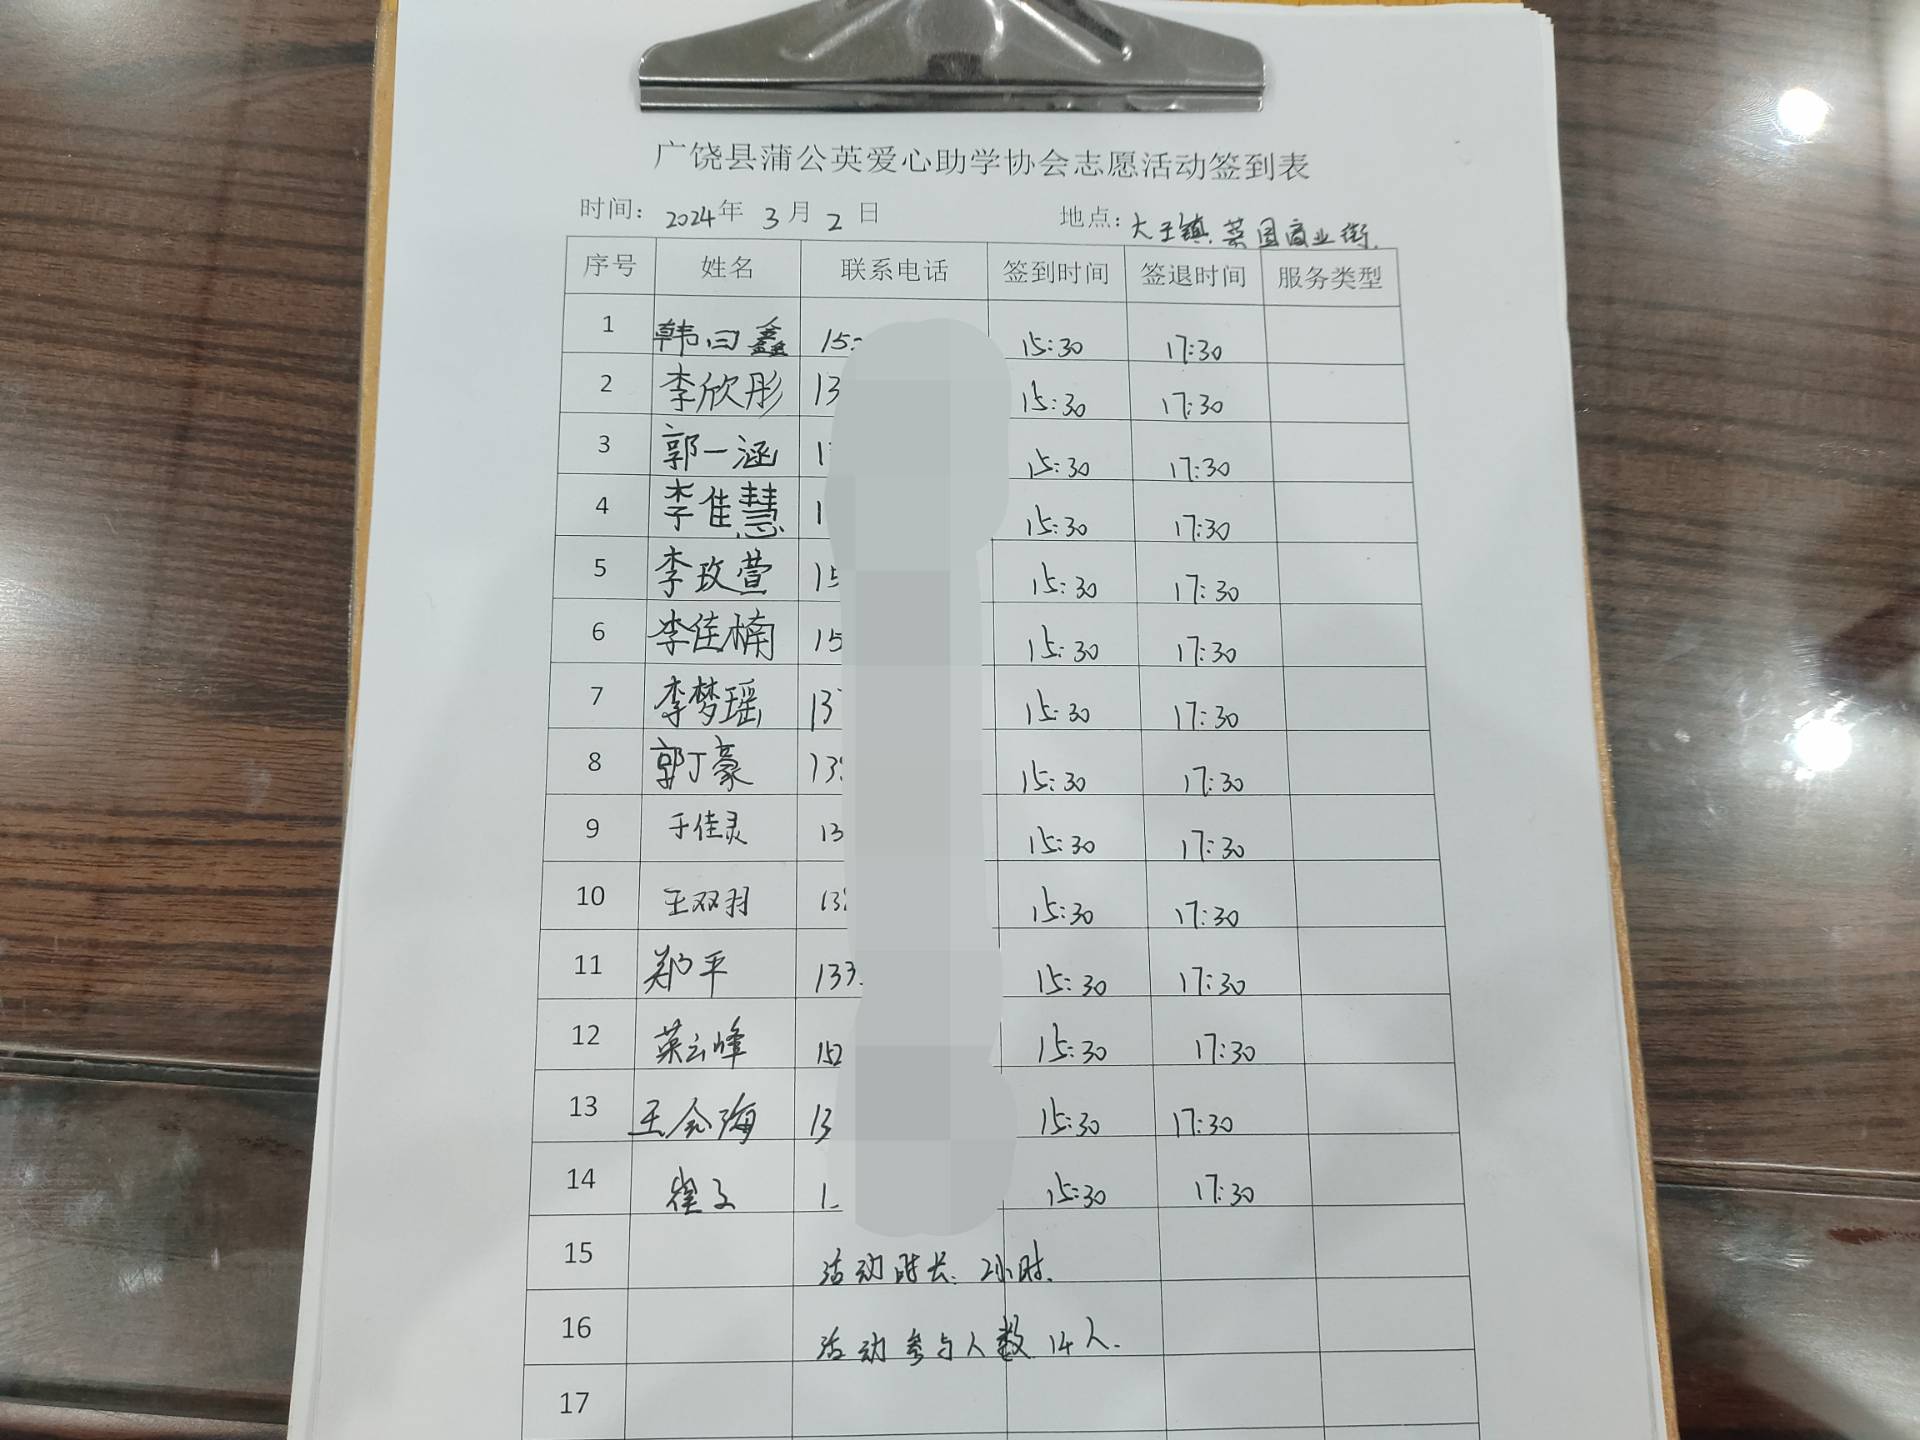 广饶县蒲公英爱心助学协会志愿活动签到表
时间: 2024年 3月 2日 地点: 大王镇.菜园商业街.
序号 姓名 联系电话 签到时间 签退时间 服务类型
1 韩曰鑫 15 15:30 17:30
2 李欣彤 13 15:30 17:30
3 郭一涵 1 15:30 17:30
4 李佳慧 1 15:30 17:30
5 李玫萱 15 15:30 17:30
6 李佳楠 15 15:30 17:30
7 李梦瑶 13 15:30 17:30
8 郭丁豪 13 15:30 17:30
9 于佳灵 13 15:30 17:30
10 王双羽 13 15:30 17:30
11 郑平 133 15:30 17:30
12 英云峰 152 15:30 17:30
13 王会海 13 15:30 17:30
14 崔文 1 15:30 17:30
15 活动时长: 2小时.
16 活动参与人数 14人.
17